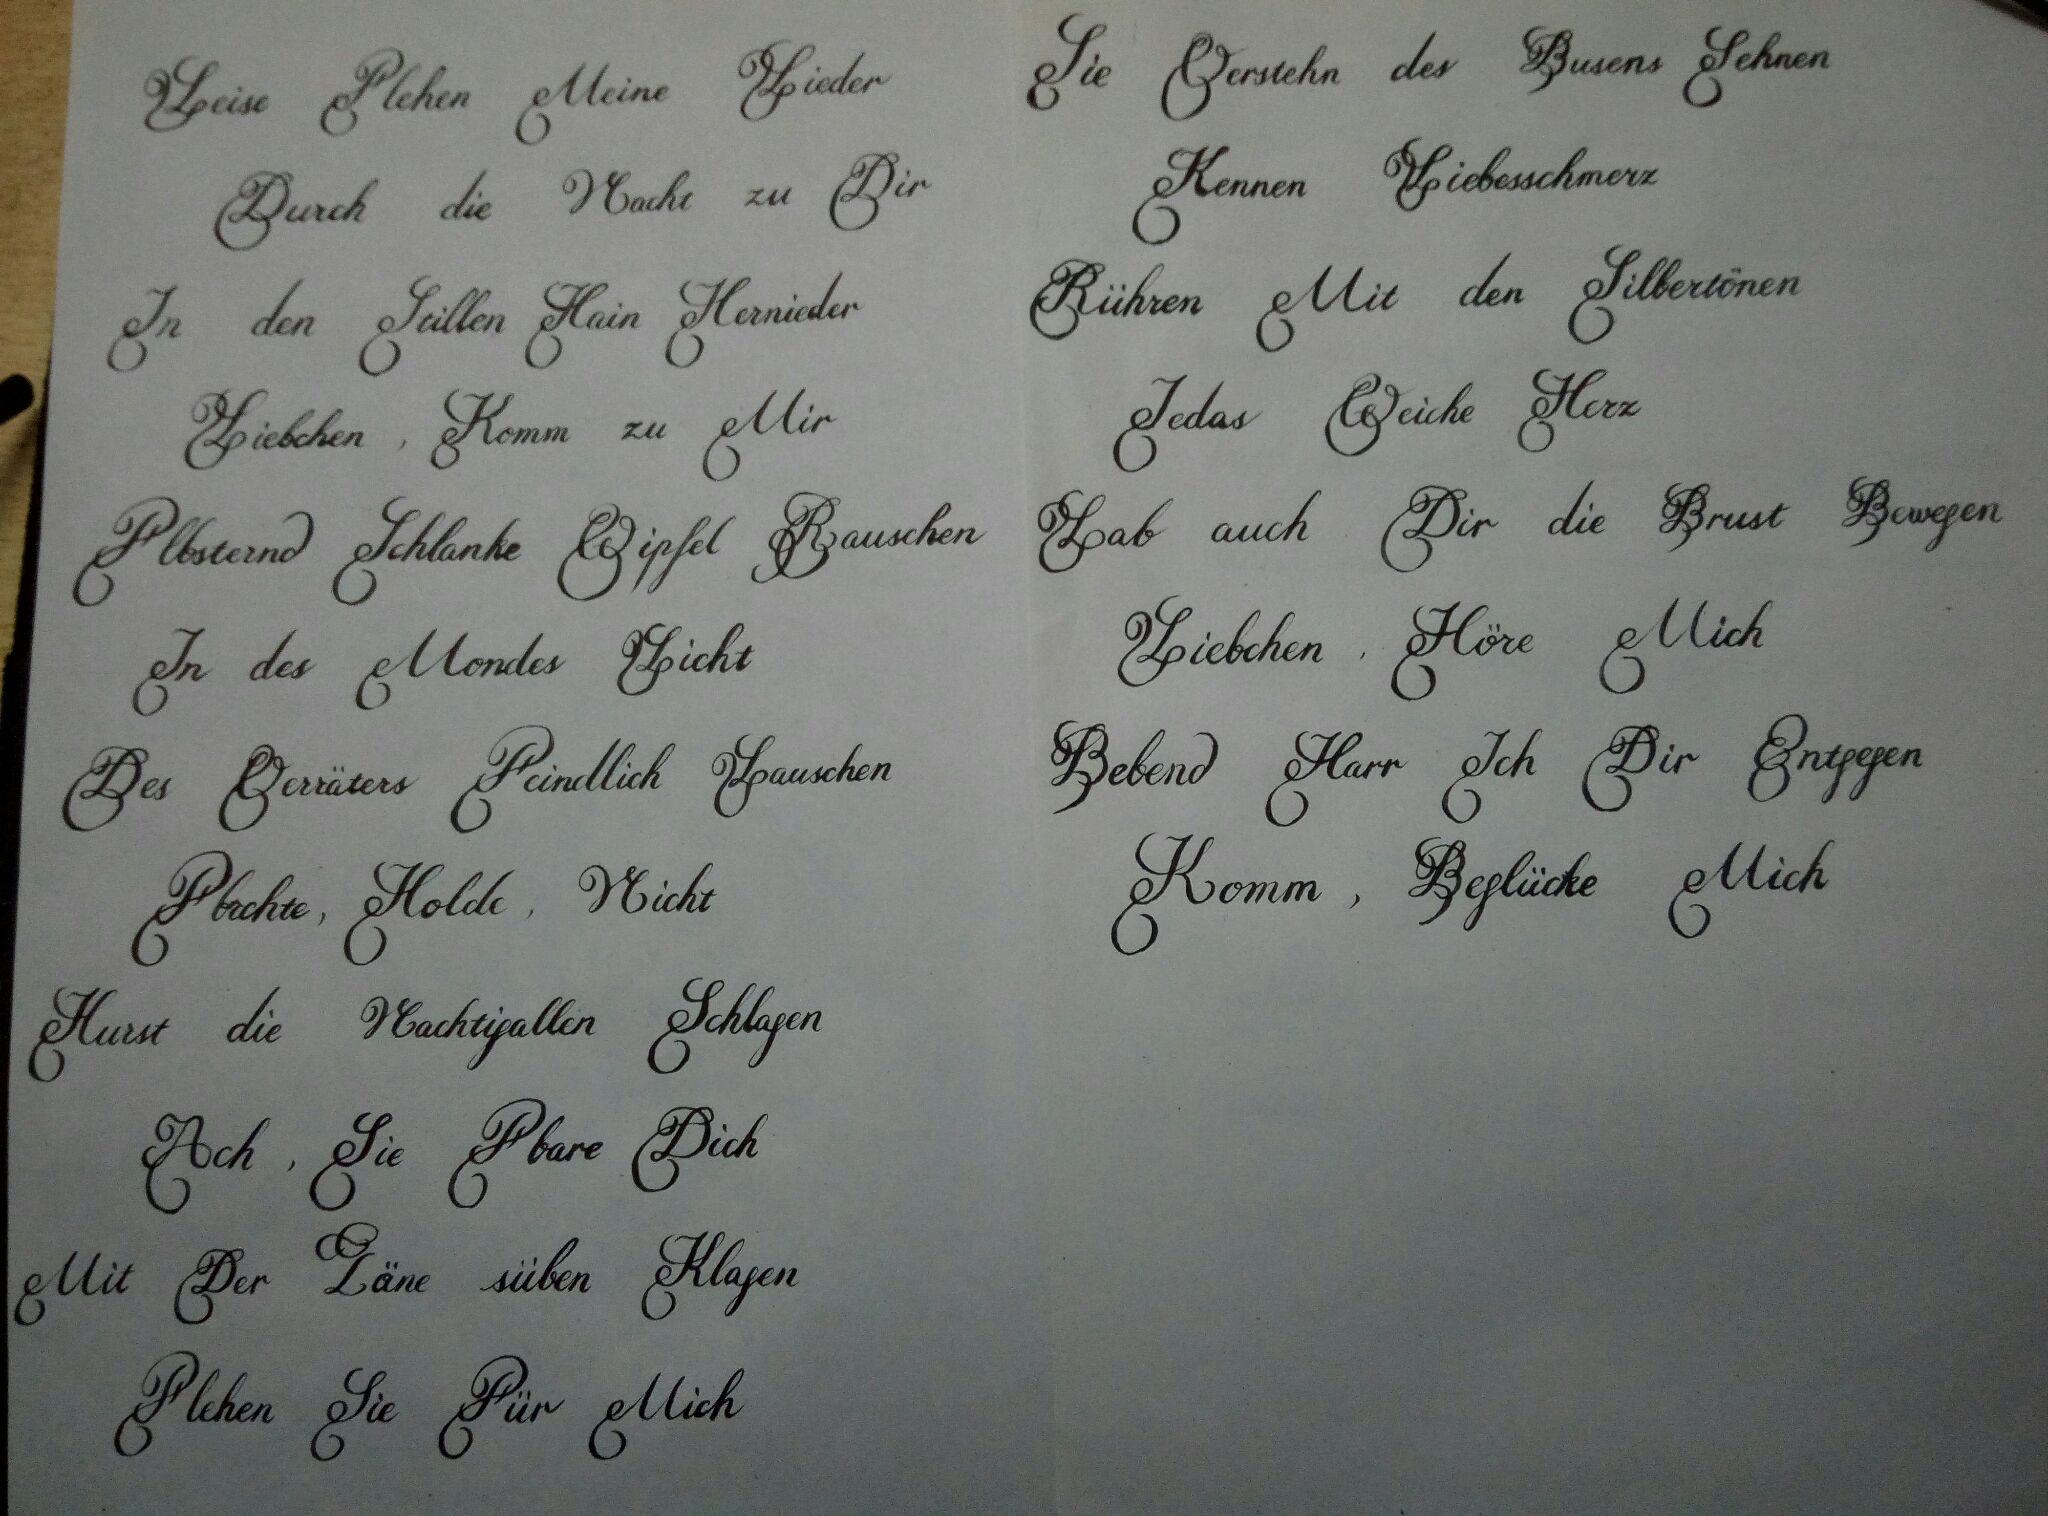 Leise Flehen Meine Lieder
Durch die Nacht zu Dir
In den Stillen Hain Hernieder
Liebchen, Komm zu Mir
Flbsternd Schlanke Wipfel Rauschen
In des Mondes Licht
Des Verräters Feindlich Lauschen
Fbrchte, Holde, Nicht
Hurst die Nachtigallen Schlagen
Ach, Sie Fbare Dich
Mit Der Täne süben Klagen
Flehen Sie Für Mich
Sie Verstehn des Busens Sehnen
Kennen Liebesschmerz
Rühren Mit den Silbertönen
Jedas Weiche Herz
Lab auch Dir die Brust Bewegen
Liebchen, Höre Mich
Bebend Harr Ich Dir Entgegen
Komm, Beglücke Mich